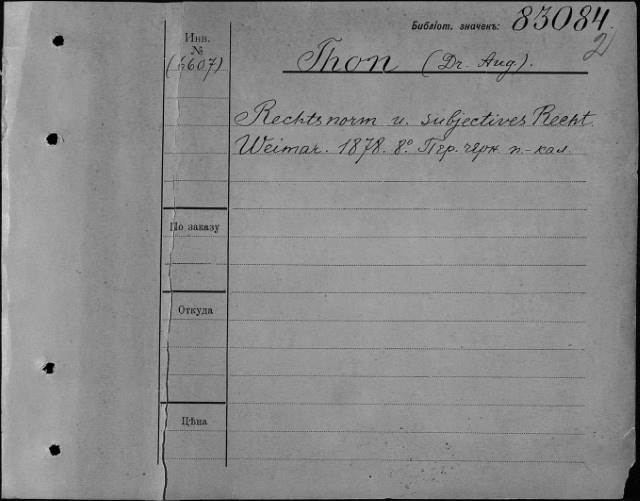 Библіот. значекъ: 83084
2)
Инв.
№
(5607)
Thon (Dr. Aug).
Rechtsnorm u. subjectives Recht.
Weimar. 1878. 8º Пер. черн п.-кал.
По заказу
Откуда
Цѣна